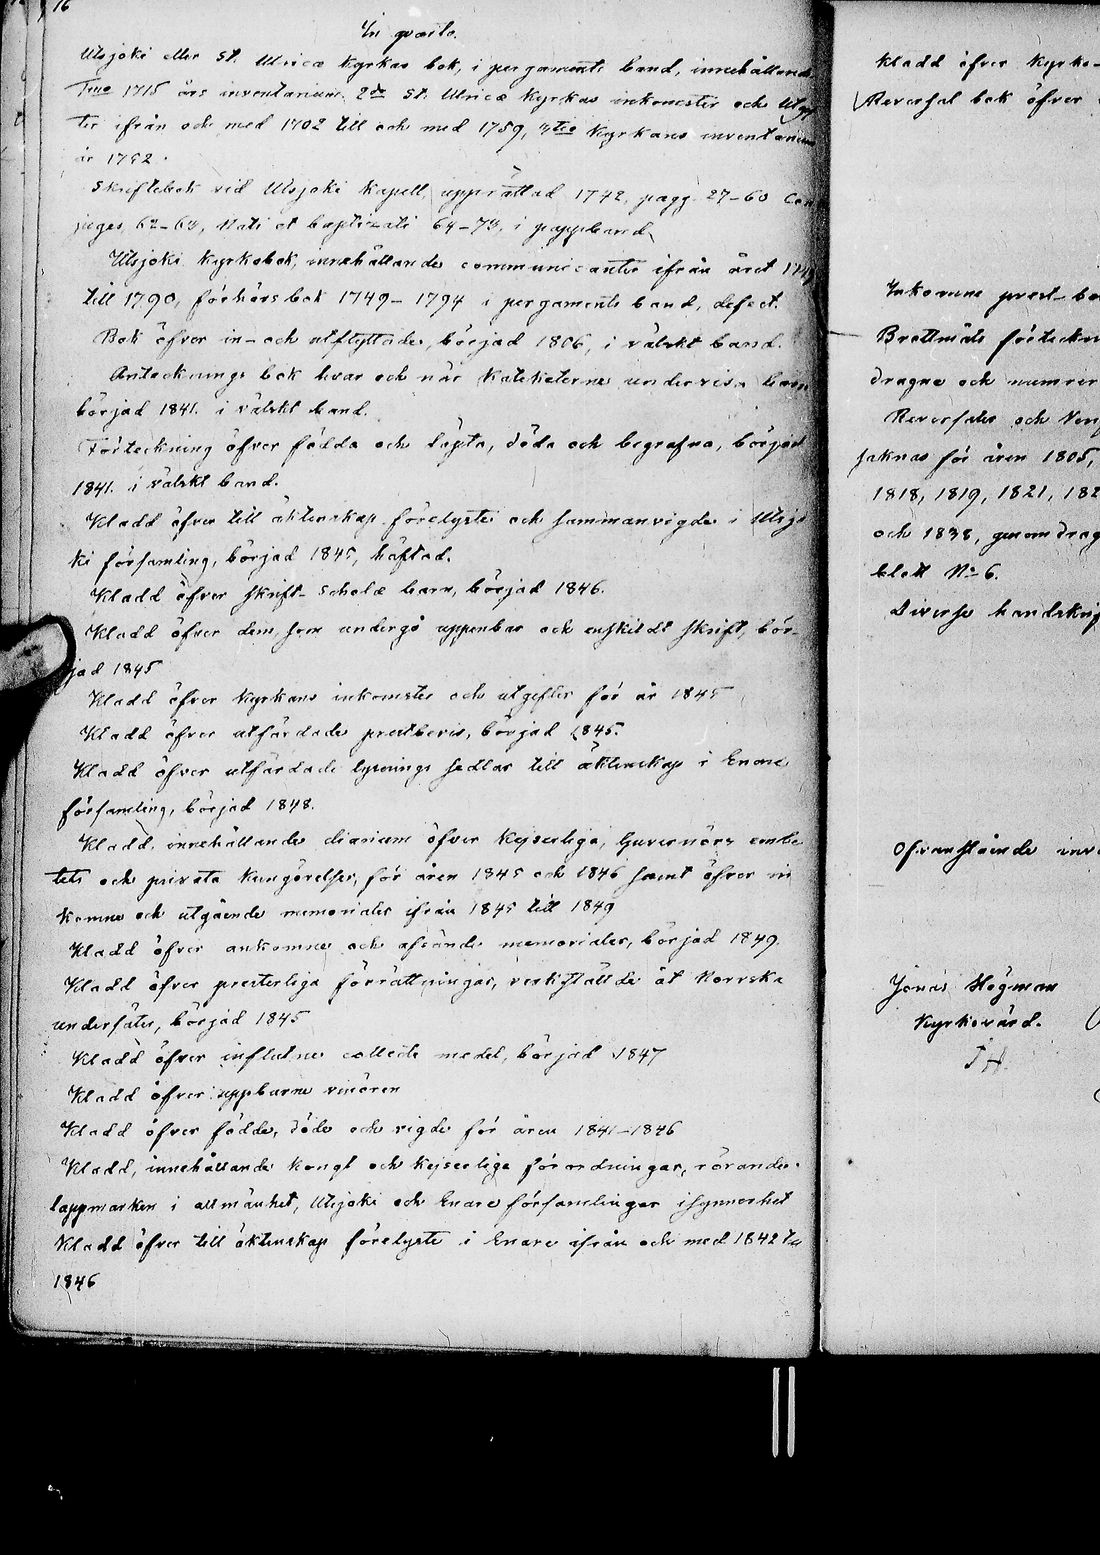 16
In qvarto.
Utsjoki eller St. Ulricæ Kyrkas bok, i pergaments band, innehållande
1mo 1715 års inventarium. 2do St. Ulricæ Kyrkas inkomster och Utgif
ter ifrån och med 1702 till och med 1759, 3tio Kyrkans inventarium
år 1752.
Skriftebok vid Utsjoki Kapell, upprättad 1742, pagg. 27-60 Con
juges, 62-63, Nati et baptizati 64-73, i pappband.
Utsjoki Kyrkobok, innehållande communicanter ifrån året 1749
till 1790, förhörsbok 1749-1794 i pergaments band, defect.
Bok öfver in- och utflyttade, börjad 1806, i välskt band.
Antecknings bok hvar och när Kateketerne undervisa barn
börjad 1841. i välskt band.
Förteckning öfver födda och döpta, döda och begrafna, börjad
1841. i välskt band.
Kladd öfver till äktenskap förelyste och sammanvigde i Utsjo
ki församling, börjad 1845, häftad.
Kladd öfver skrift-scholæ barn, börjad 1846.
Kladd öfver dem, som undergå uppenbar och enskildt skrift, bör-
jad 1845
Kladd öfver Kyrkans inkomster och utgifter för år 1845
Kladd öfver utfärdade prestbevis, börjad 1845.
Kladd öfver utfärdade lysnings sedlar till äktenskap i Enare
församling, börjad 1848.
Kladd innehållande diarium öfver Kejserliga, Guvernörs embe
tets och privata Kungörelser, för åren 1845 och 1846 samt öfver in
komne och utgående memorialer ifrån 1845 till 1849
Kladd öfver ankomne och afsände memorialer, börjad 1849.
Kladd öfver presterliga förrättningar, verkställde åt Norrska
undersåter, börjad 1845
Kladd öfver influtne collecte medel, börjad 1847
Kladd öfver uppburne vinören
Kladd öfver födde, döde och vigde för åren 1841-1846
Kladd, innehållande Kongl och Kejserliga förordningar, rörande
lappmarken i allmänhet, Utsjoki och Enare församlingar isynnerhet
Kladd öfver till äktenskap förelyste i Enare ifrån och med 1842 till
1846
Kladd öfver Kyrko-
Reversal bok öfver
Inkomne prest-be
Brottmåls förteckn
dragne och numrer
Reversaler och Ver
saknas för åren 1805,
1818, 1819, 1821, 182
och 1838, genomdrag
blott No 6.
Diverse handskrif
Ofvanstående inve
Jonas Högman
Kyrkovärd.
JH.